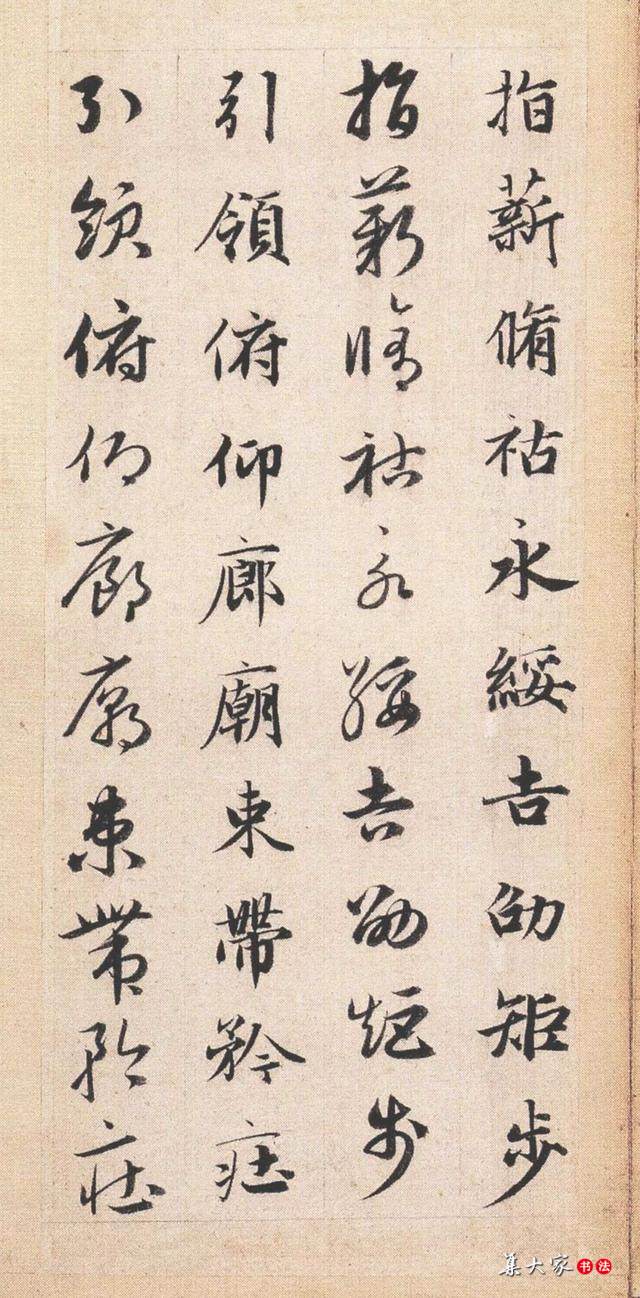 指薪脩祜永綏吉劭矩步
指薪脩祜永綏吉劭矩步
引領俯仰廊廟束帶矜莊
引領俯仰廊廟束帶矜莊
集大家书法